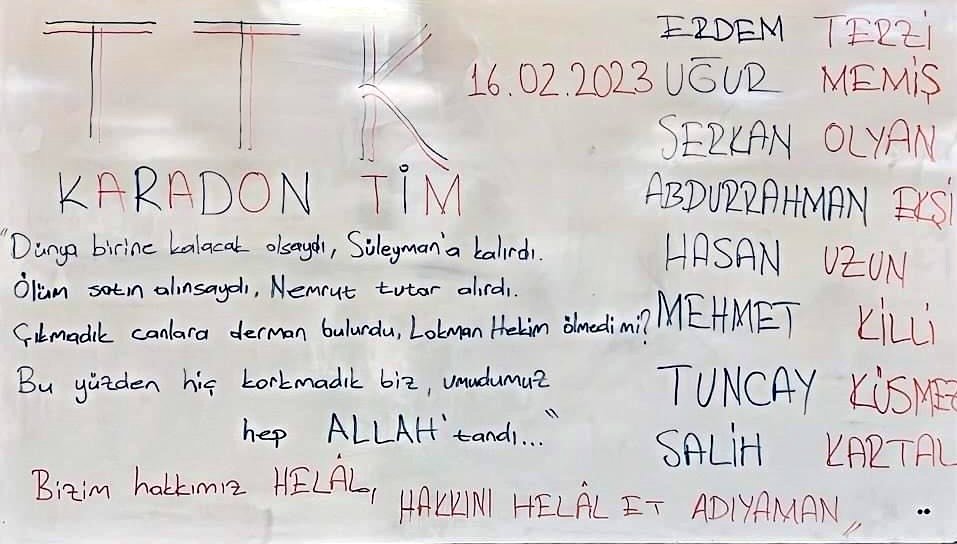 TTK
KARADON TİM
16.02.2023
ERDEM TERZİ
UĞUR MEMİŞ
SERKAN OLYAN
ABDURRAHMAN EKŞİ
HASAN UZUN
MEHMET KİLLİ
TUNCAY KÜSMEZ
SALİH KARTAL
"Dünya birine kalacak olsaydı, Süleyman'a kalırdı.
Ölüm satın alınsaydı, Nemrut tutar alırdı.
Çıkmadık canlara derman bulurdu, Lokman Hekim ölmedi mi?
Bu yüzden hiç korkmadık biz, umudumuz
hep ALLAH'tandı..."
Bizim hakkımız HELÂL, HAKKINI HELÂL ET ADIYAMAN,,